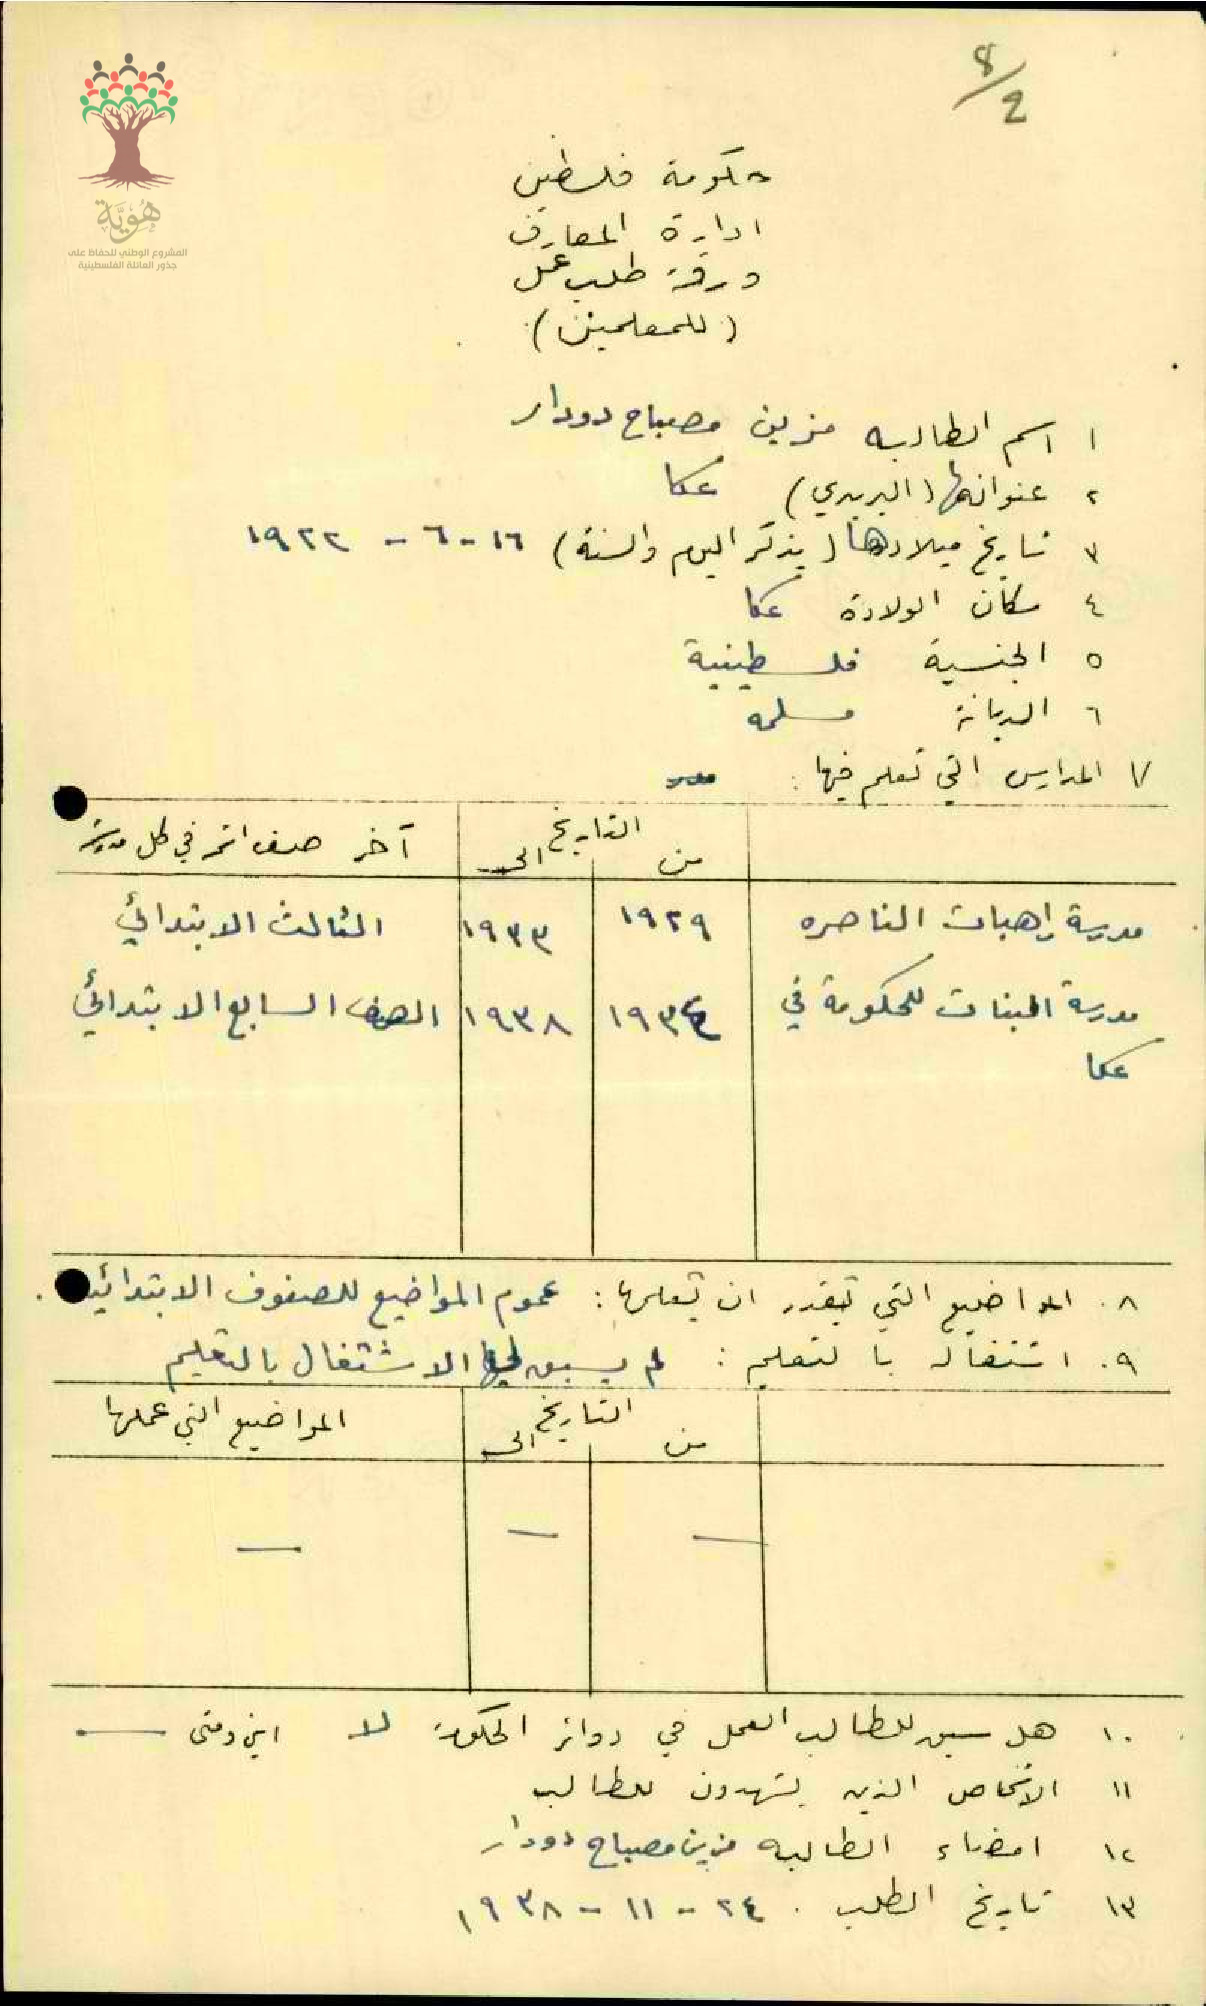 8/2
هُوِيَّة
المشروع الوطني للحفاظ على
جذور العائلة الفلسطينية
حكومة فلسطين
ادارة المعارف
ورقة طلب عمل
(للمعلمين)
١ اسم الطالبه مزين مصباح دودار
٢ عنوانها (البريدي) عكا
٣ تاريخ ميلادها (يذكر اليوم والسنة) ١٦ - ٦ - ١٩٢٢
٤ مكان الولادة عكا
٥ الجنسية فلسطينية
٦ الديانة مسلمه
٧ المدارس التي تعلم فيها :
التاريخ
من الى آخر صف اتم في كل مدرسة
مدرسة راهبات الناصره ١٩٢٩ ١٩٣٣ الثالث الابتدائي
مدرسة البنات للحكومة في ١٩٣٤ ١٩٣٨ الصف السابع الابتدائي
عكا
٨. المواضيع التي تقدر ان تعلمها : عموم المواضيع للصفوف الابتدائية .
٩. اشتغاله بالتعليم : لم يسبق لها الاشتغال بالتعليم
التاريخ
من الى المواضيع التي علمها
— — —
١٠. هل سبق للطالب العمل في دوائر الحكومة لا اين ومتى —
١١ الاشخاص الذين يشهدون للطالب
١٢ امضاء الطالبه مزين مصباح دودار
١٣ تاريخ الطلب . ٢٤ - ١١ - ١٩٣٨